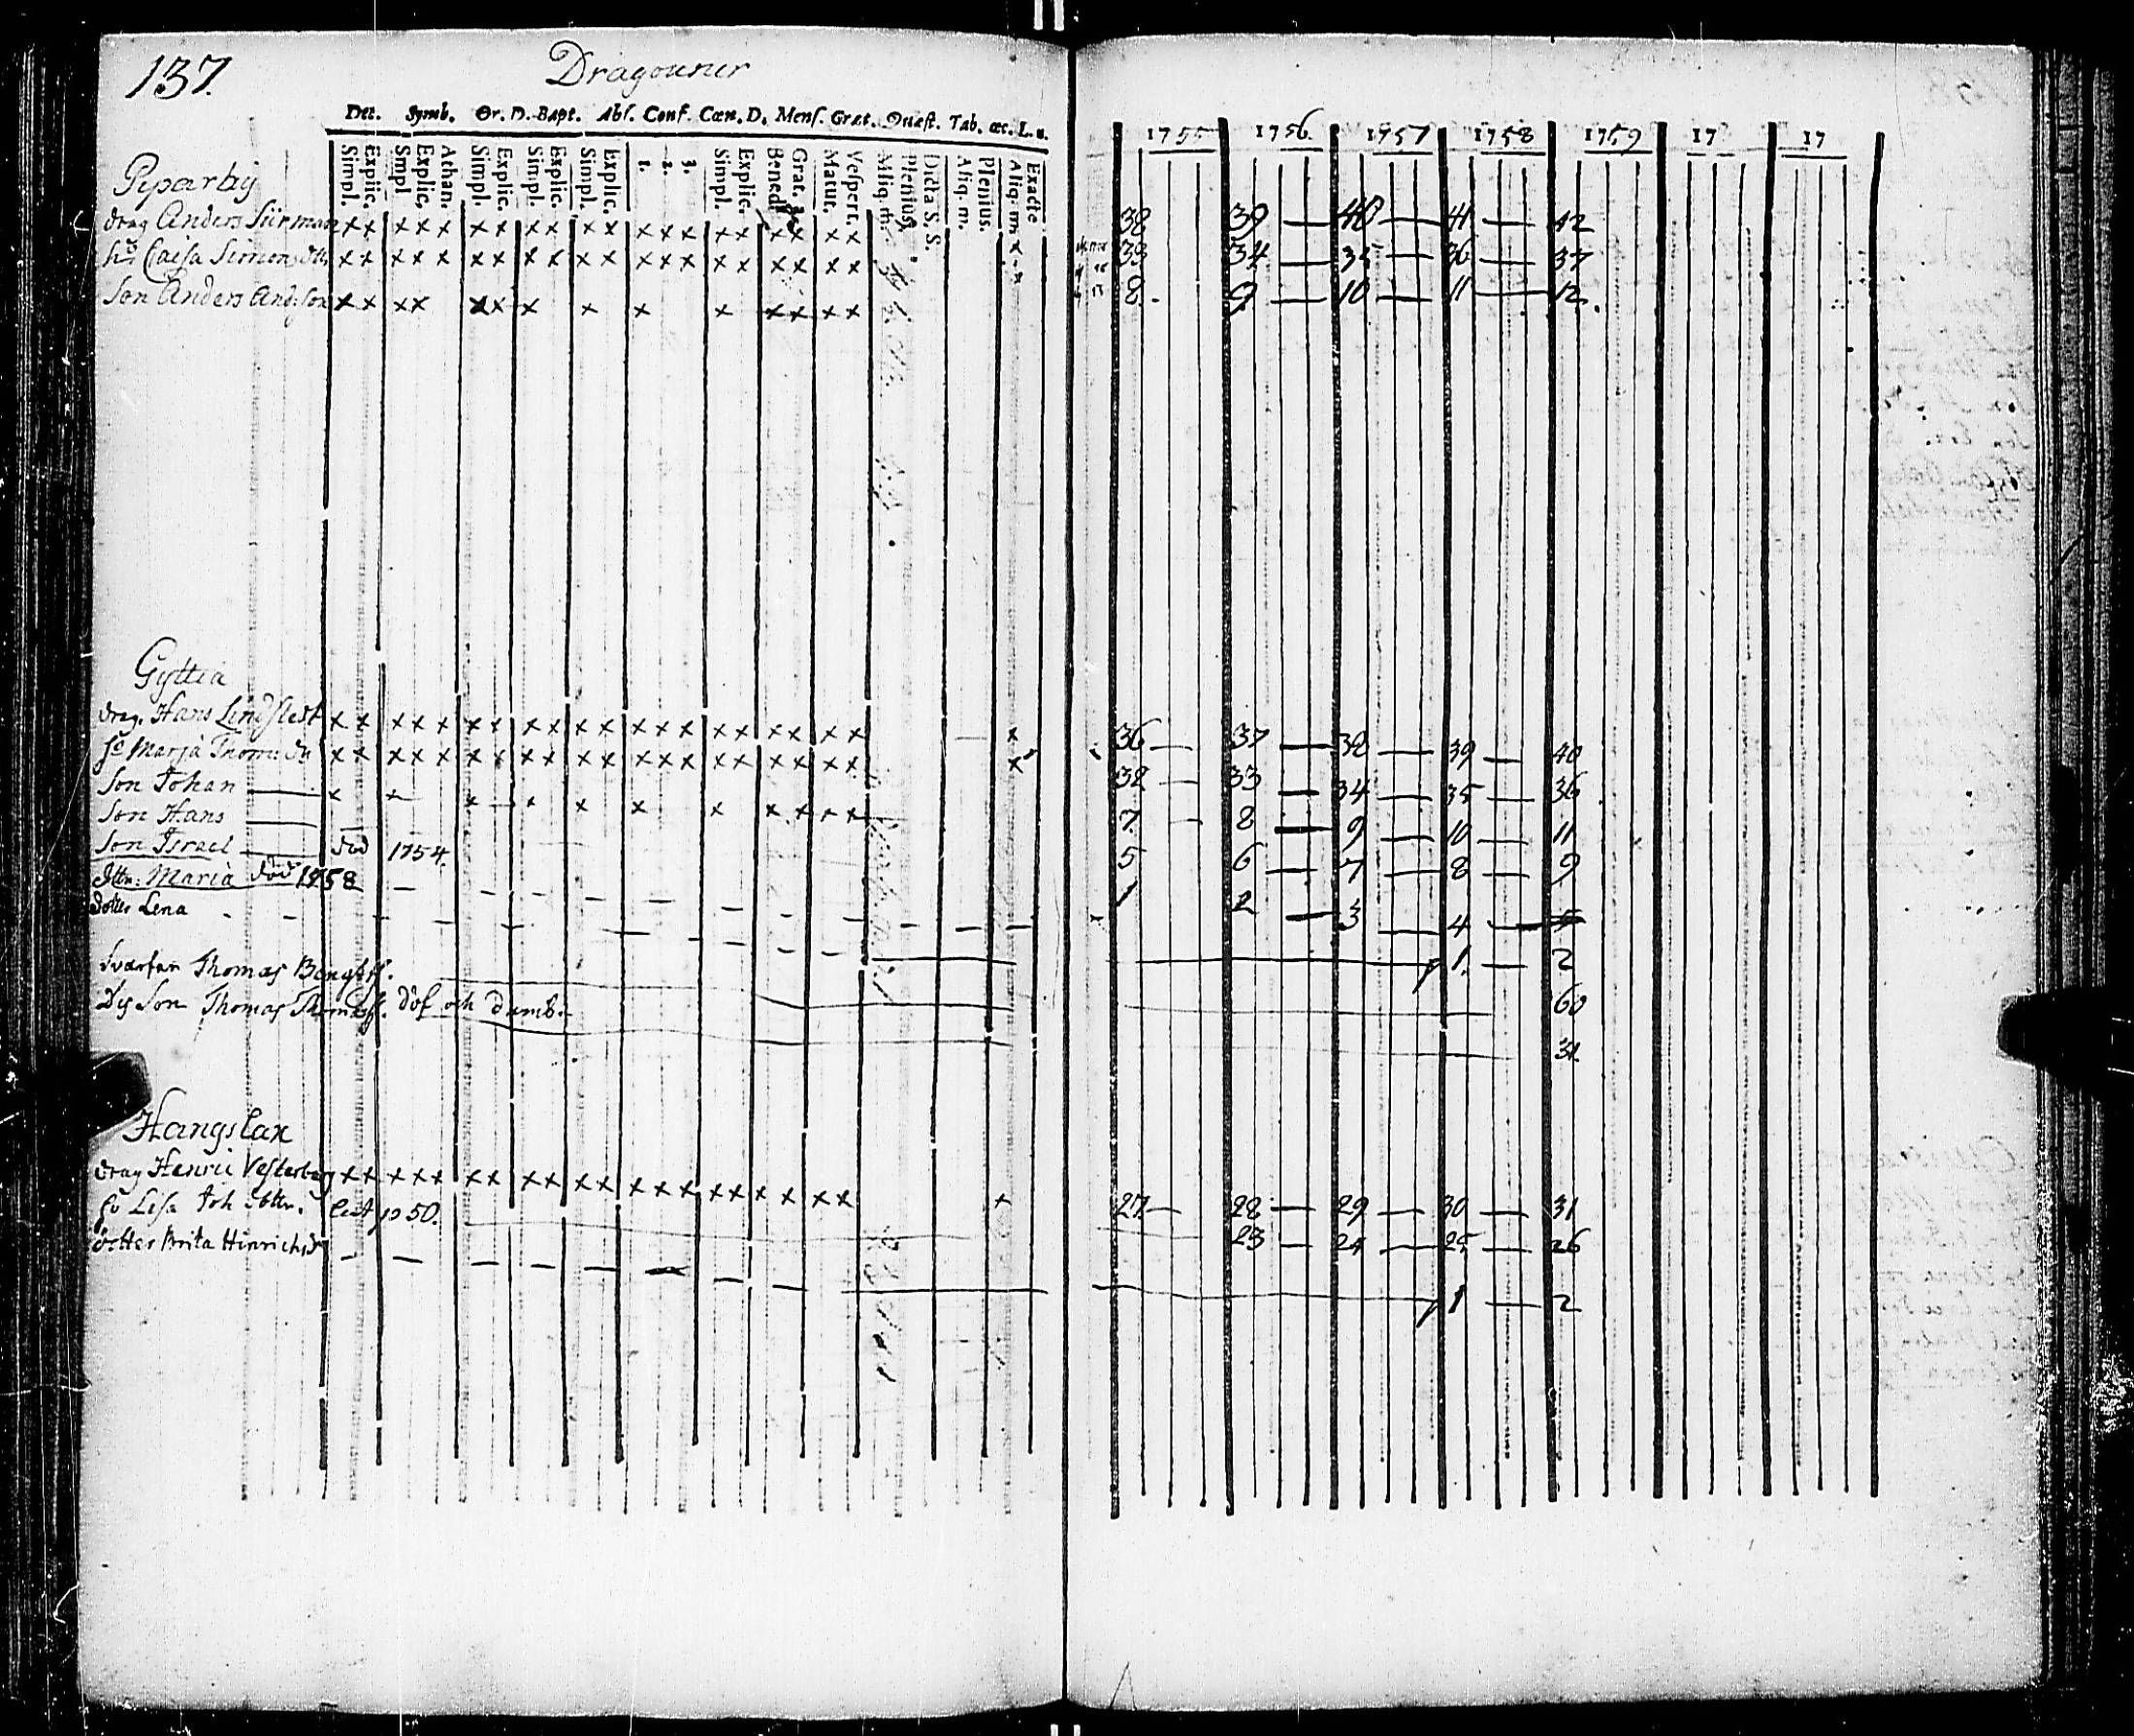 137.
Dragouner
Dec. Symb. Or. D. Bapt. Abs. Conf. Cœn. D. Mens. Grat. Quæst. Tab. œc. L. n.
Simpl. Explic. Smpl. Explic. Athan. Simpl. Explic. Simpl. Explic. Simpl. Explic. 1. 2. 3. Simpl. Explic. Bened. Grat. a. Matut. Vespert. Aliq. m. Plenius. Dicta S. S. Aliq. m. Plenius. Aliq. m. Exacte
1755 1756 1757 1758 1759 17 17
Pyparby
drag Anders Sürman x x x x x x x x x x x x x x x x x x x x 38 39 — 40 — 41 — 42
Caisa Simons dtr x x x x x x x x x x x x x x x x x x x x 33 34 — 35 — 36 — 37
Son Anders And: son x x x x x x x x x x x x x x 8. 9 — 10 — 11 — 12.
Gyttia
drag. Hans Lindstedt x x x x x x x x x x x x x x x x x x x x x 36 — 37 — 38 — 39 — 40
Marja Thom: dr x x x x x x x x x x x x x x x x x x x x x 32 — 33 — 34 — 35 — 36
Son Johan — x x x x x x x x x x x 7 — 8 — 9 — 10 — 11
Son Hans — 5 6 — 7 — 8 — 9
Son Israel — död 1754.
dttr: Maria död 1758 1 2 — 3 — 4 —
dotter Lena 1. — 2
Svärfar Thomas Bengtss. 60
Dess Son Thomas Thomass. döf och dumb. 31.
Hangslax
drag Henric Vesterberg x x x x x x x x x x x x x x x x x x x x x 27 — 28 — 29 — 30 — 31
Lisa Joh dttr. 50. 23 — 24 — 25 — 26
dotter Brita Hinrichsd 1 — 2